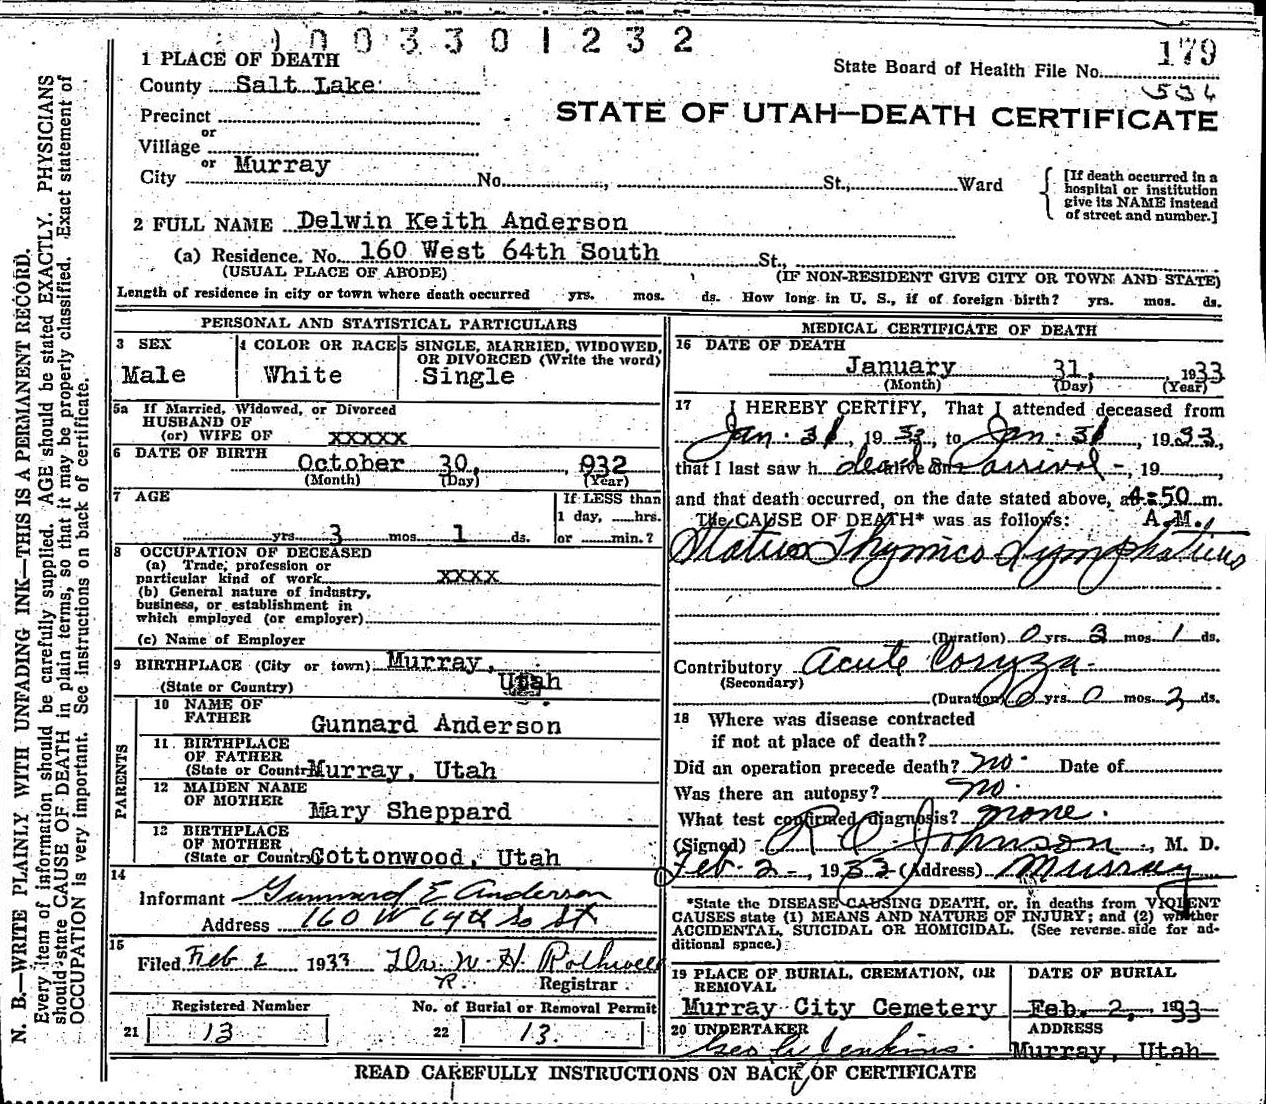 1003301232
179
State Board of Health File No.
534
STATE OF UTAH—DEATH CERTIFICATE
1 PLACE OF DEATH
County Salt Lake
Precinct
or
Village
or Murray
City No. , St., Ward
[If death occurred in a
hospital or institution
give its NAME instead
of street and number.]
2 FULL NAME Delwin Keith Anderson
(a) Residence. No. 160 West 64th South St.,
(USUAL PLACE OF ABODE) (IF NON-RESIDENT GIVE CITY OR TOWN AND STATE)
Length of residence in city or town where death occurred yrs. mos. ds. How long in U. S., if of foreign birth? yrs. mos. ds.
PERSONAL AND STATISTICAL PARTICULARS
3 SEX
Male
4 COLOR OR RACE
White
5 SINGLE, MARRIED, WIDOWED,
OR DIVORCED (Write the word)
Single
5a If Married, Widowed, or Divorced
HUSBAND OF
(or) WIFE OF xxxxx
6 DATE OF BIRTH October 30, 1932
(Month) (Day) (Year)
7 AGE
yrs. 3 mos. 1 ds.
If LESS than
1 day, hrs.
or min.?
8 OCCUPATION OF DECEASED
(a) Trade, profession or
particular kind of work xxxx
(b) General nature of industry,
business, or establishment in
which employed (or employer)
(c) Name of Employer
9 BIRTHPLACE (City or town) Murray,
(State or Country) Utah
PARENTS
10 NAME OF
FATHER Gunnard Anderson
11 BIRTHPLACE
OF FATHER
(State or Country) Murray, Utah
12 MAIDEN NAME
OF MOTHER Mary Sheppard
13 BIRTHPLACE
OF MOTHER
(State or Country) Cottonwood, Utah
14
Informant Gunnard E Anderson
Address 160 W 64th So St
15
Filed Feb 2 1933 Dr. W. H. Rothwell
R. Registrar.
Registered Number No. of Burial or Removal Permit
21 13 22 13.
MEDICAL CERTIFICATE OF DEATH
16 DATE OF DEATH
January 31, 1933
(Month) (Day) (Year)
17 I HEREBY CERTIFY, That I attended deceased from
Jan. 31, 1933, to Jan. 31, 1933,
that I last saw h dead on arrival alive on , 19 ,
and that death occurred, on the date stated above, at 4:50 m.
The CAUSE OF DEATH* was as follows: A.M.
Status Thymico Lymphaticus
(Duration) 0 yrs. 3 mos. 1 ds.
Contributory Acute Coryza.
(Secondary)
(Duration) 0 yrs. 0 mos. 2 ds.
18 Where was disease contracted
if not at place of death?
Did an operation precede death? no. Date of
Was there an autopsy? no.
What test confirmed diagnosis? none.
(Signed) R. O. Johnson, M. D.
Feb. 2, 1933 (Address) Murray
*State the DISEASE CAUSING DEATH, or, in deaths from VIOLENT
CAUSES state (1) MEANS AND NATURE OF INJURY; and (2) whether
ACCIDENTAL, SUICIDAL OR HOMICIDAL. (See reverse side for ad-
ditional space.)
19 PLACE OF BURIAL, CREMATION, OR
REMOVAL
Murray City Cemetery
DATE OF BURIAL
Feb. 2, 1933
20 UNDERTAKER
Geo W Jenkins.
ADDRESS
Murray, Utah
READ CAREFULLY INSTRUCTIONS ON BACK OF CERTIFICATE
N. B.—WRITE PLAINLY WITH UNFADING INK—THIS IS A PERMANENT RECORD.
Every item of information should be carefully supplied. AGE should be stated EXACTLY. PHYSICIANS
should state CAUSE OF DEATH in plain terms, so that it may be properly classified. Exact statement of
OCCUPATION is very important. See instructions on back of certificate.